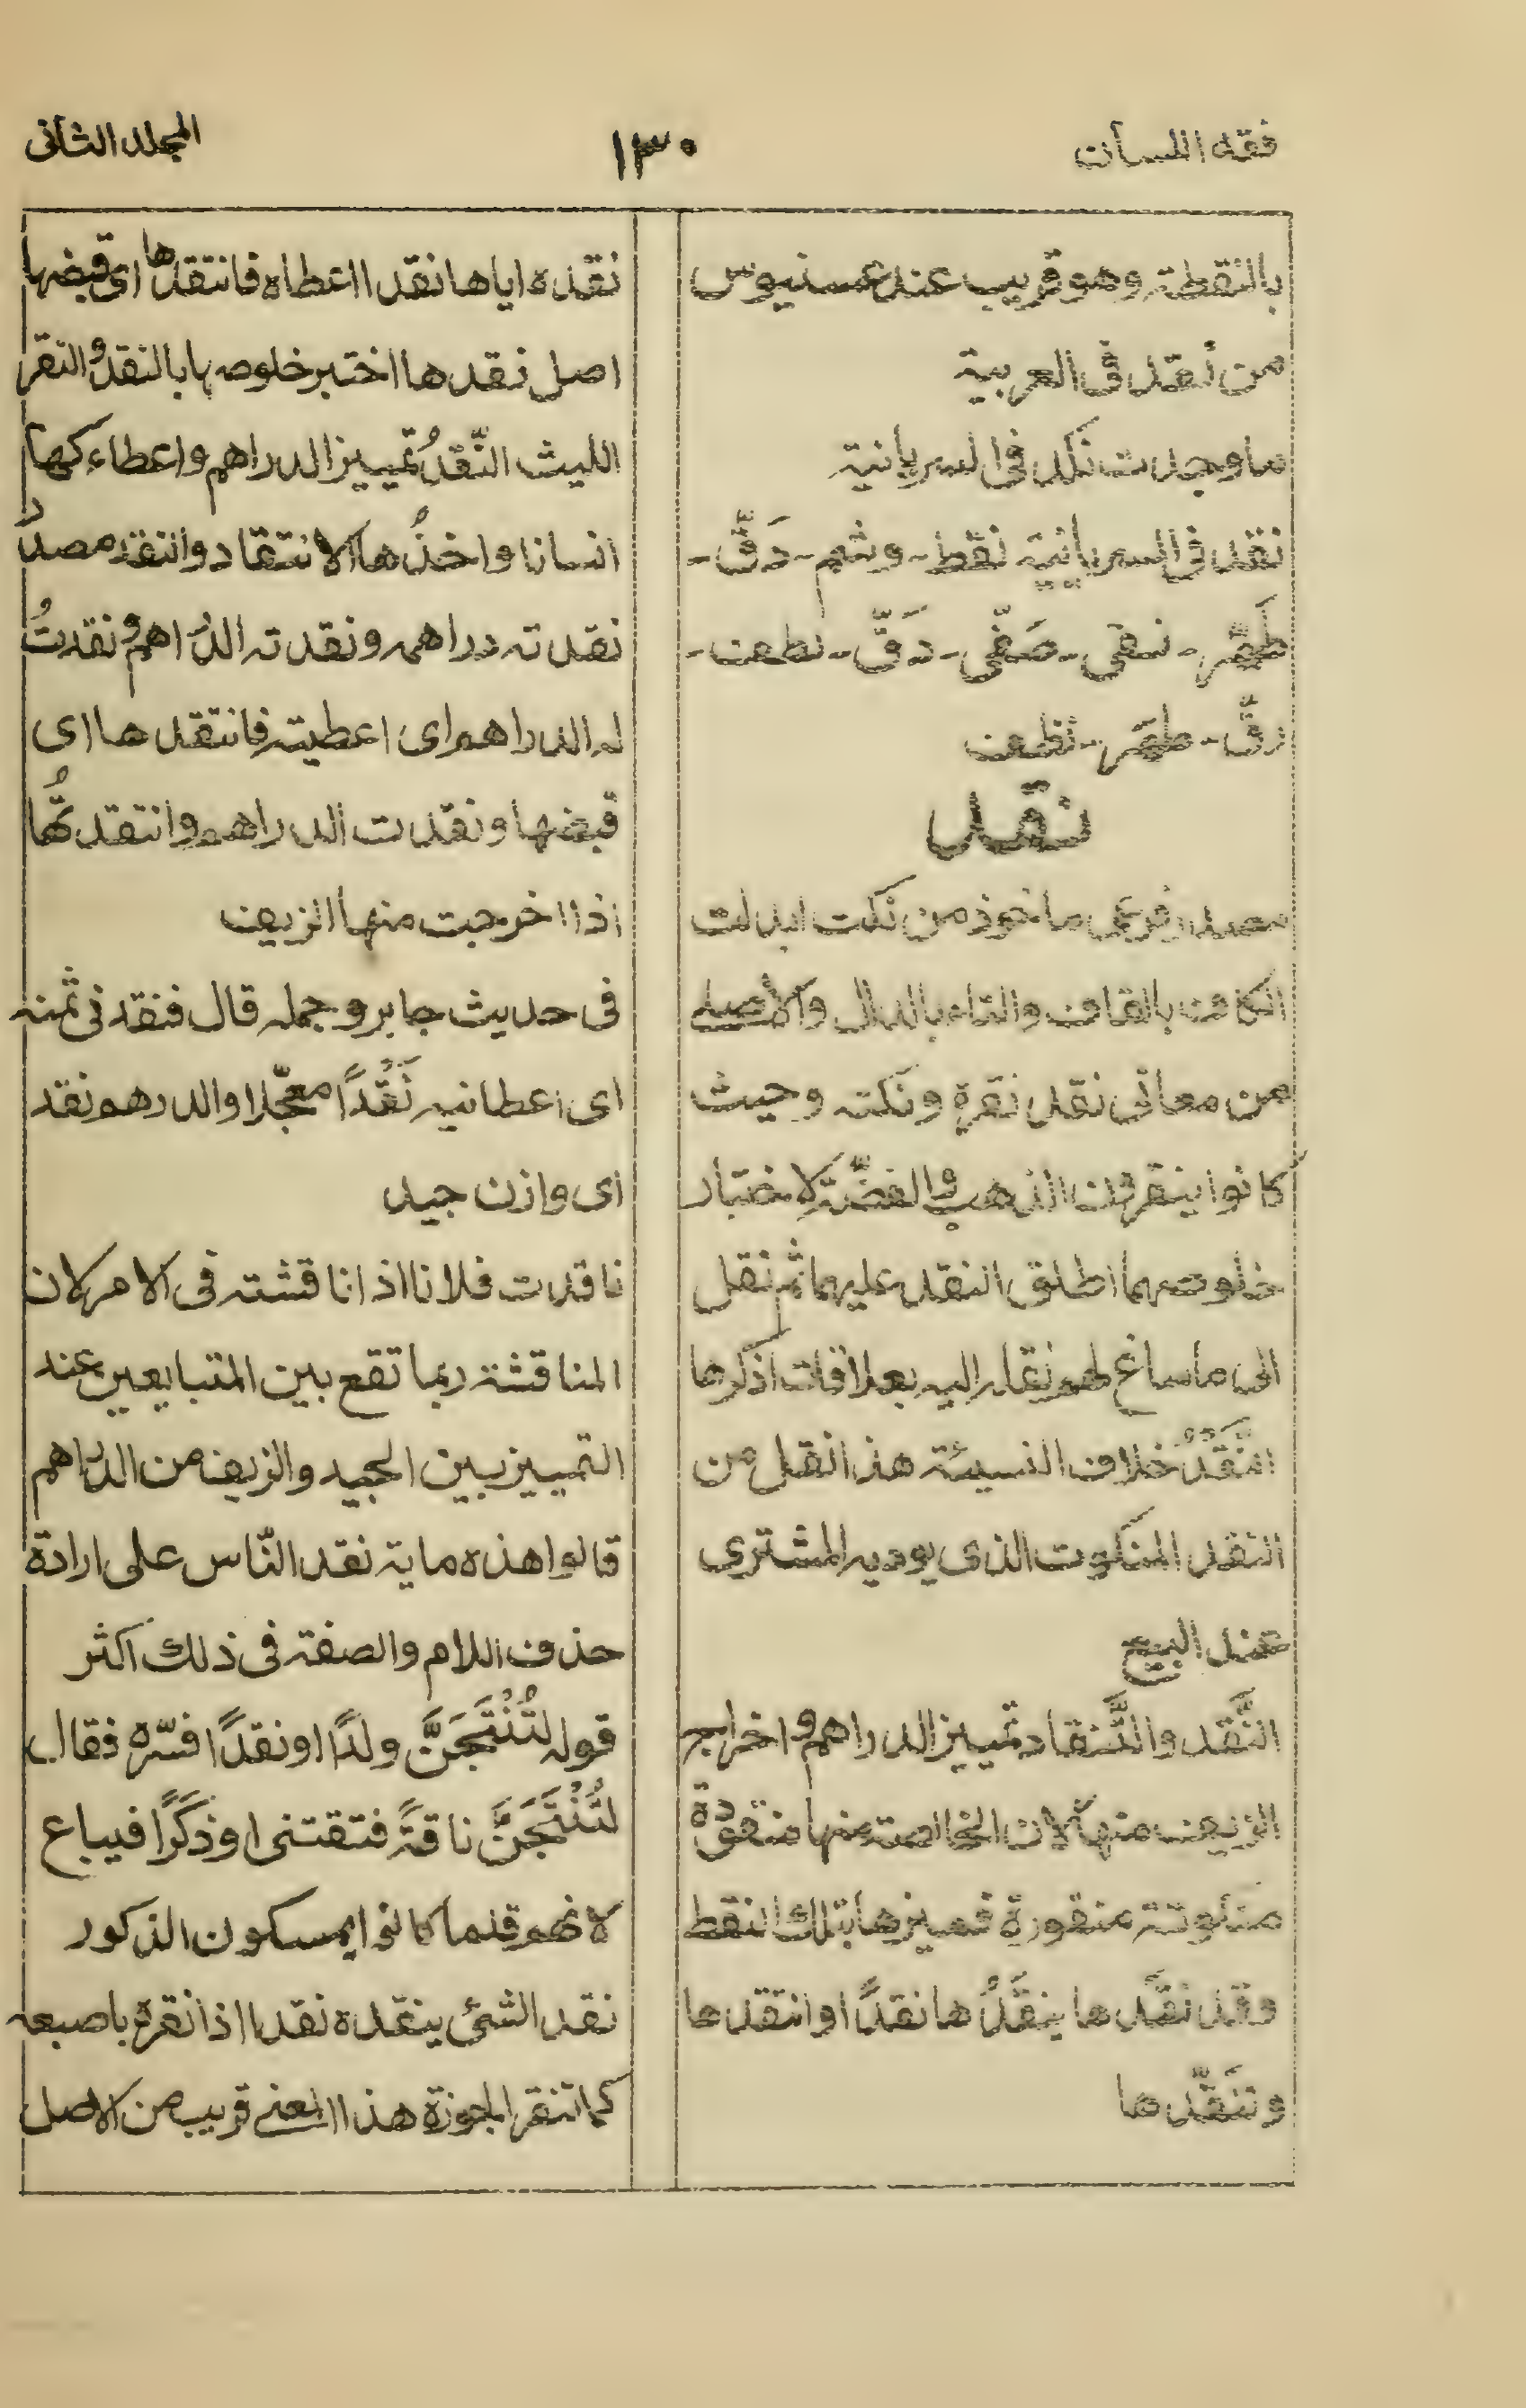 فقه اللسان
١٣٠
المجلد الثانی
بالنقطة وهو قریب عند غسنیوس
من نقد فی العربیة
ما وجدت نکد فی السریانیة
نقد فی السریانیة نقط - وشم - دَقَّ -
طَهَّر - نقی - صَفّی - دَقَّ - نطف -
رقَّ - طهَّر - نظف
نقد
مصدر فرعی ماخوذ من نکت ابدلت
الکاف بالقاف والتاء بالدال والاصیل
من معانی نقد نقره ونکته وحیث
کانوا ینقرون الذهب والفضّة لاختبار
خلوصهما اطلق النقد علیهما ثم نقل
الی ما ساغ لهم نقله الیه بعلاقات اذکرها
النَّقْدُ خلاف النسیئة هذا نقل من
النقد المنکوت الذی یودیه المشتری
عند البیع
النَّقد والتَّنقاد تمییز الدراهم واخراج
الزیف منها لان الخالصة منها منقودة
منکوتة منقورة فمیزها بتلك النقط
وقد نقَّدها ینقُدُها نقدًا وانتقدها
وتنقَّدها
نقده ایاها نقدا اعطاه فانتقدها ای قبضها
اصل نقدها اختبر خلوصها بالنقد والنقر
اللیث النَّقدُ تمییز الدراهم واعطاءکها
انسانا واخذُها الانتقاد والنقد مصدرُ
نقدته دراهمه ونقدته الدراهم ونقدتُ
له الدراهم ای اعطیته فانتقدها ای
قبضها ونقدت الدراهم وانتقدتُّها
اذا اخرجت منها الزیف
فی حدیث جابر وجمله قال فنقدنی ثمنه
ای اعطانیه نَقْدًا معجّلا والدرهم نقد
ای وازن جید
ناقدت فلانا اذا ناقشته فی الامر لان
المناقشة ربما تقع بین المتبایعین عند
التمییز بین الجید والزیف من الدراهم
قالوا هذه مایة نقد النّاس علی ارادة
حذف اللام والصفة فی ذلك اکثر
قوله لتُنْتَجَنَّ ولدًا او نقدًا فسّره فقال
لتُنْتَجَنَّ ناقةً فتقتنی او ذکَرًا فیباع
لانهم قلما کانوا یمسکون الذکور
نقد الشیٔ ینقده نقدا اذا نقره باصبعه
کما تنقر الجوزة هذا المعنے قریب من الاصل